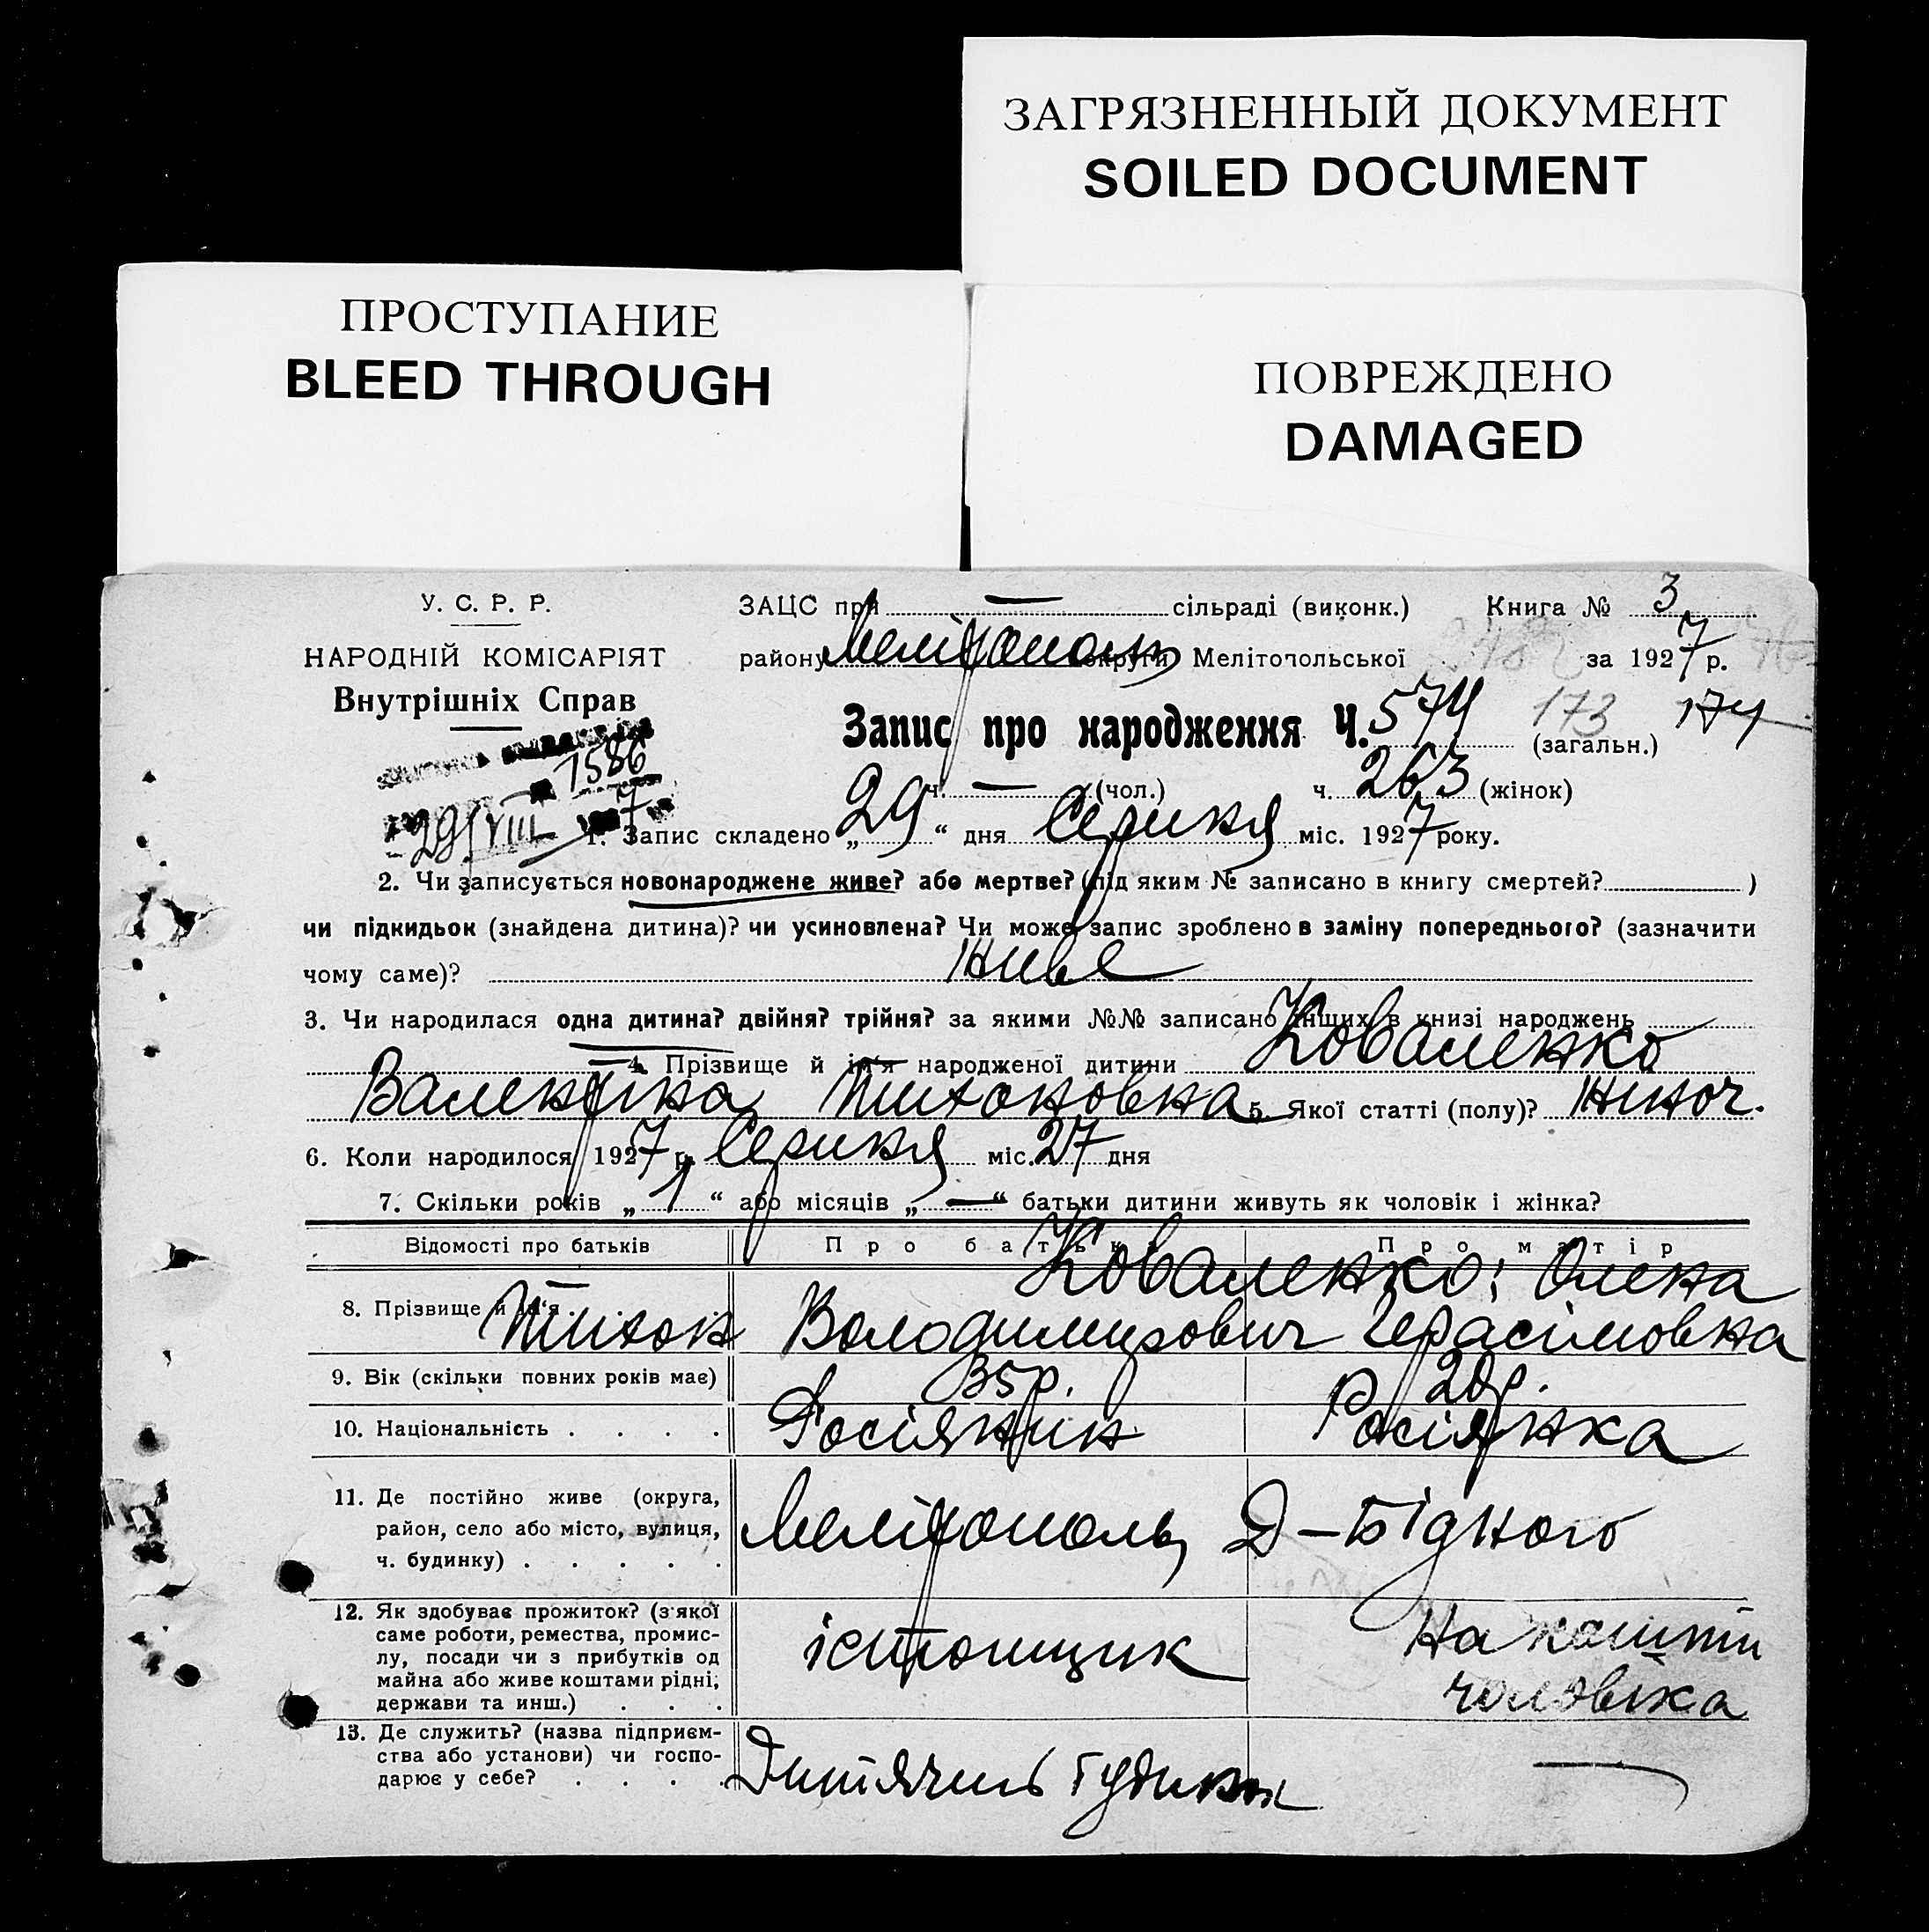 ЗАГРЯЗНЕННЫЙ ДОКУМЕНТ
SOILED DOCUMENT
ПРОСТУПАНИЕ
BLEED THROUGH
ПОВРЕЖДЕНО
DAMAGED
У. С. Р. Р.
НАРОДНІЙ КОМІСАРІЯТ
Внутрішніх Справ
1586
29/VIII 7
ЗАЦС при — сільраді (виконк.) Книга № 3
району Мелітополь округи Мелітопольської за 1927 р.
Запис про народження Ч. 574 (загальн.) 173 174
ч. — (чол.) ч. 263 (жінок)
1. Запис складено „29“ дня Серпня міс. 1927 року.
2. Чи записується новонароджене живе? або мертве? (під яким № записано в книгу смертей? )
чи підкидьок (знайдена дитина)? чи усиновлена? Чи може запис зроблено в заміну попереднього? (зазначити
чому саме)? живе
3. Чи народилася одна дитина? двійня? трійня? за якими №№ записано инших в книзі народжень
— 4. Прізвище й ім'я народженої дитини Коваленко
Валентина Тихоновна 5. Якої статті (полу)? жіноч.
6. Коли народилося 1927 р. Серпня міс. 27 дня
7. Скільки років „1“ або місяців „—“ батьки дитини живуть як чоловік і жінка?
Відомості про батьків Про батька Про матір
Коваленко; Олена
8. Прізвище й ім'я . . . Тихон Володимирович Герасімовна
9. Вік (скільки повних років має) 35р. 20р.
10. Національність . . . . Росіянин Росіянка
11. Де постійно живе (округа,
район, село або місто, вулиця,
ч. будинку) . . . . .
Мелітополь Д-Бідного
12. Як здобуває прожиток? (з якої
саме роботи, ремества, промис-
лу, посади чи з прибутків од
майна або живе коштами рідні,
держави та инш.) . . .
істопщик На кошти
чоловіка
13. Де служить? (назва підприєм-
ства або установи) чи госпо-
дарює у себе? . . . .
Дитячий будинок —